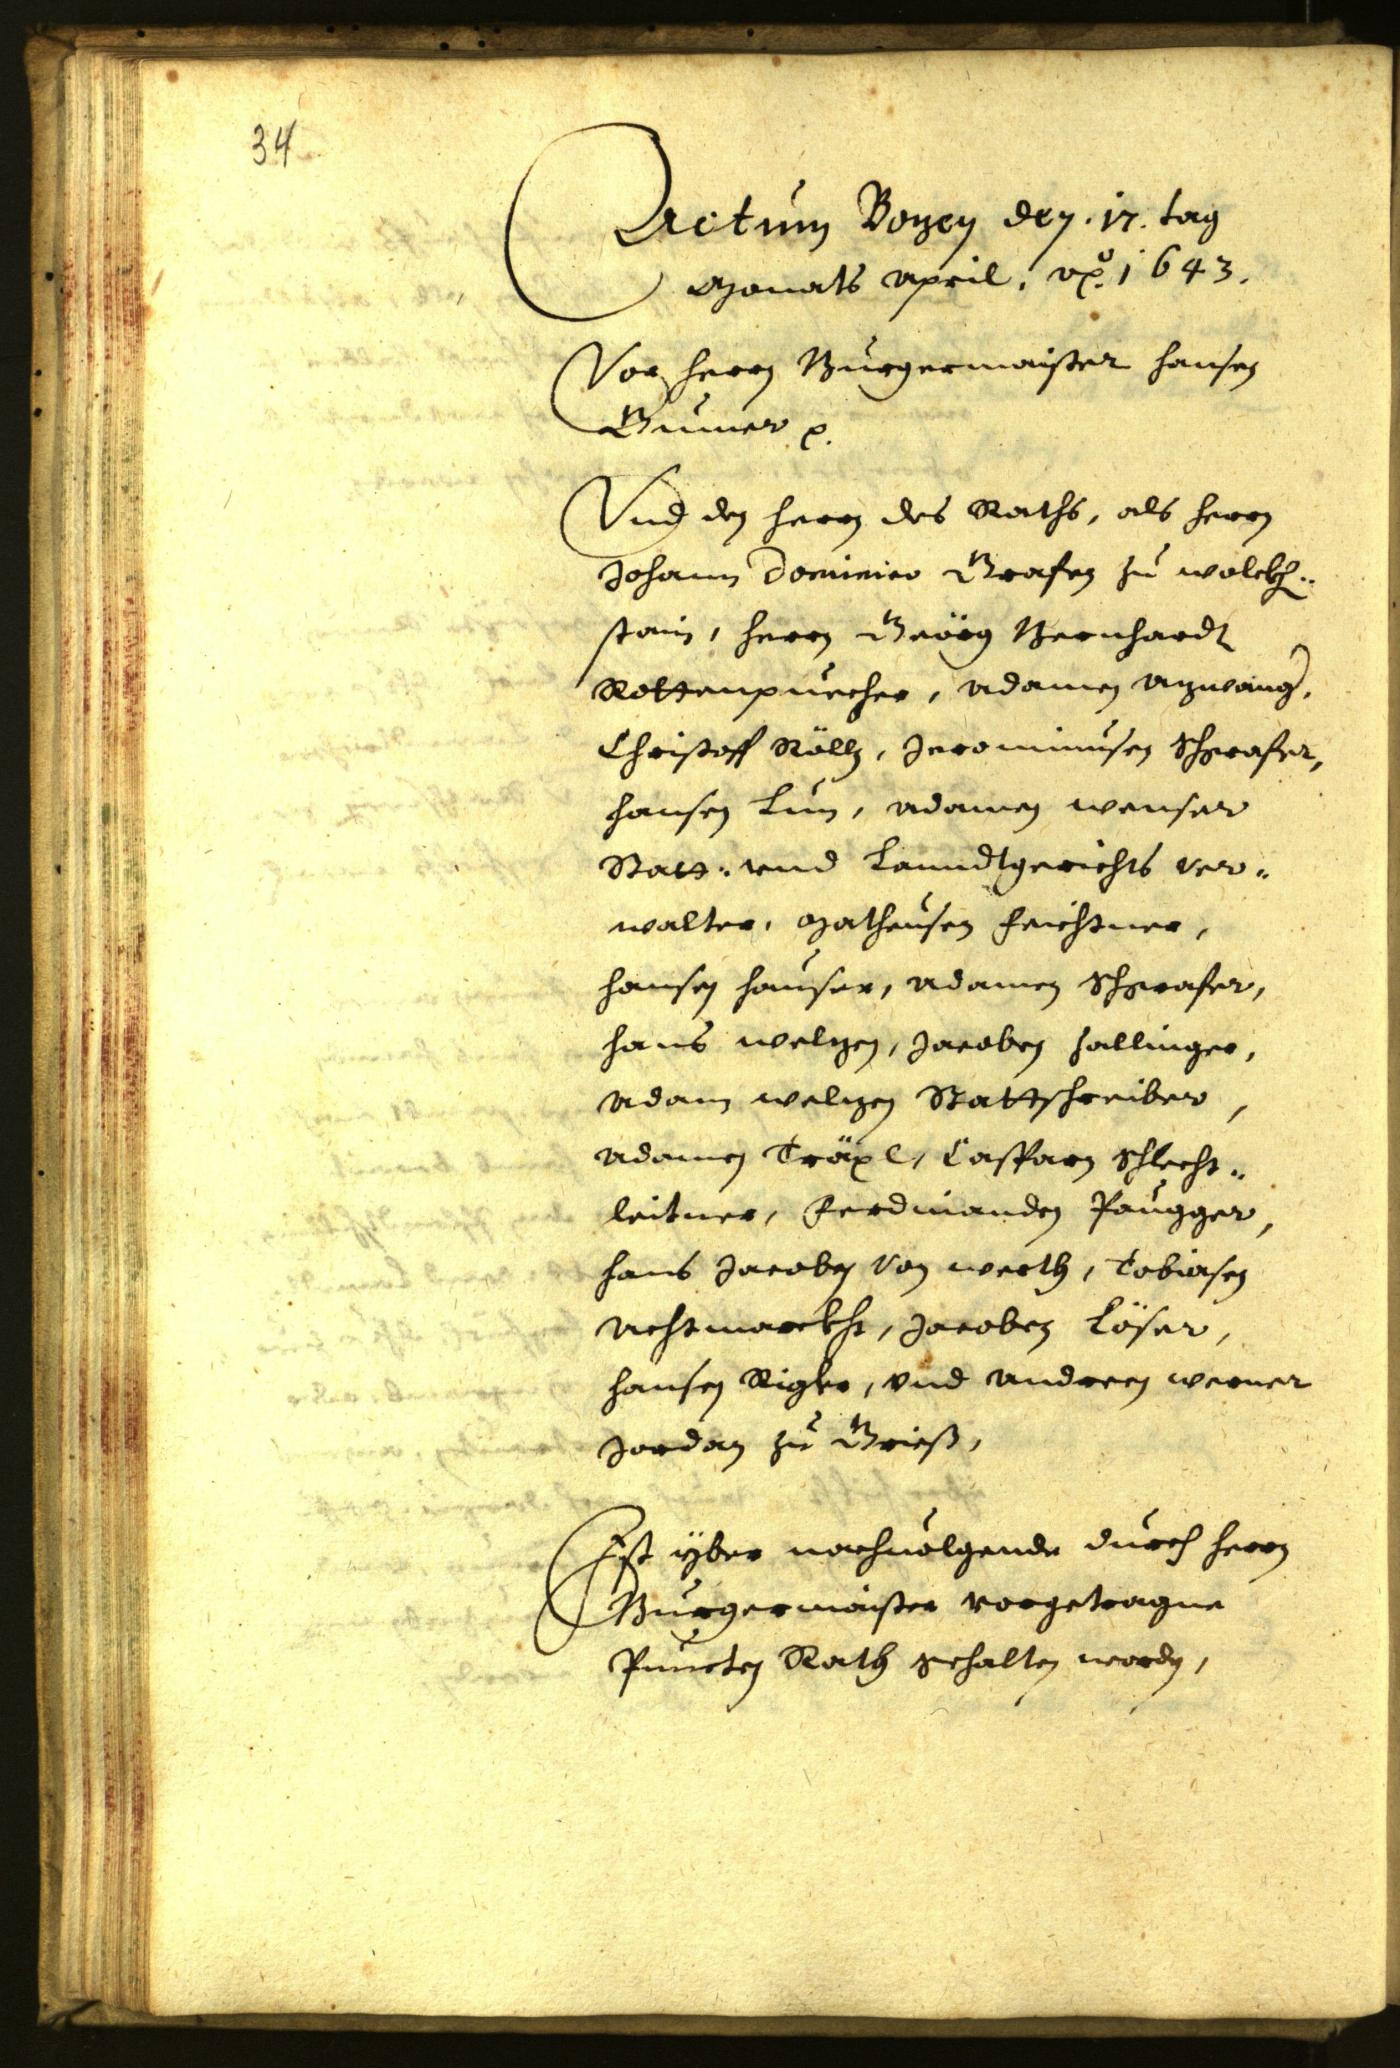 34
Actum Bozen den .17. tag
Monats April, ao. 1643.
Vor herrn Burgermaister Hansen
Gumer p.
Vnd den herrn des Raths, als herrn
Johann Dominico Grafen zu Wolckhen¬
stain, herrn Geörg Bernhardt
Rottenpuecher, Adamen Azwang,
Christoff Röllz, Jeronimusen Schgrafer,
Hansen Lun, Adamen Wenser
Statt: vnd Lanndtgerichts ver¬
walter, Matheusen Feichtner,
Hansen Hauser, Adamen Schgrafer,
Hans Welzen, Jacoben Zallinger,
Adam Welzen Stattschreiber,
Adamen Träxl, Casparn Schlecht¬
leitner, Ferdinanden Paugger,
Hans Jacoben von Werth, Tobiasen
Achtmarckht, Jacoben Löser,
Hansen Rigler, vnd Andreen Werner
Jordan zu Grieß,
Ist yber nachuolgende durch herrn
Burgermaister vorgetragne
Puncten Rath gehalten worden,